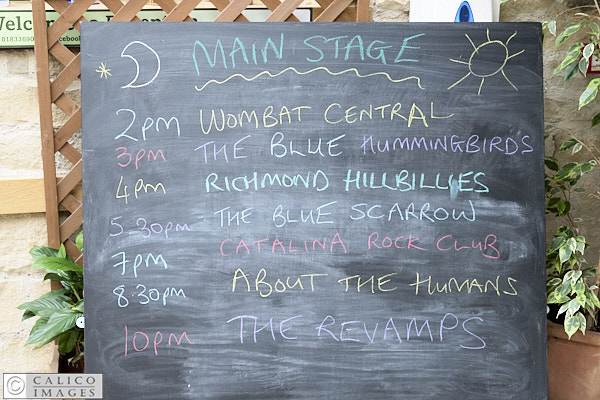 Welcome
01833690 facebook
MAIN STAGE
2pm WOMBAT CENTRAL
3pm THE BLUE HUMMINGBIRD'S
4pm RICHMOND HILLBILLIES
5.30pm THE BLUE SCARROW
7pm CATALINA ROCK CLUB
8.30pm ABOUT THE HUMANS
10pm THE REVAMPS
© CALICO IMAGES